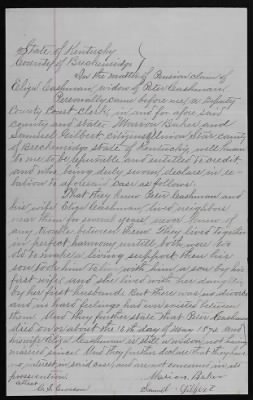 State of Kentucky
County of Breckenridge
In the matter of Pension claim of
Eliza Cashman, widow of Peter Cashman
Personally came before me, a Deputy
County Court Clerk, in and for afore said
county and state, Marion Baker and
Samuel Gilbert citizens Union Star county
of Breckenridge state of Kentucky, well known
to me to be reputable and entitled to credit
and who being duly sworn, declare in re-
lation to aforesaid case as follows.
That they knew Peter Cashman and
his wife Eliza Cashman, and neighbors
near them for several years, never knew of
any trouble between them. They lived together
in perfect harmony untill both were too
old to make a living support then his
son took him to live with him, a son by his
first wife, and she lived with her daughter
by her first husband. But there was no divorce
and no hard feelings had existed between
them. And they further state that Peter Cashman
died on or about the 16th day of May 1894 and
his wife Eliza Cashman is still a widow, not having
married since. And they further declare that they have
no interest in said case, and are not concerned in its
prosecution.
Marion Baker
Attest
Samuel Gilbert